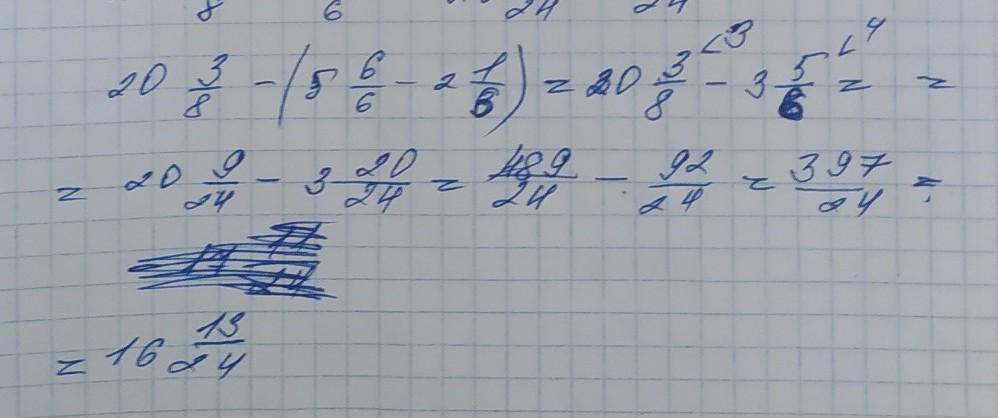 8 6 24 24
20 3/8 - (5 6/6 - 2 1/6) = 20 3/8 ∠3 - 3 5/6 ∠4 = =
= 20 9/24 - 3 20/24 = 489/24 - 92/24 = 397/24 =
= 16 13/24